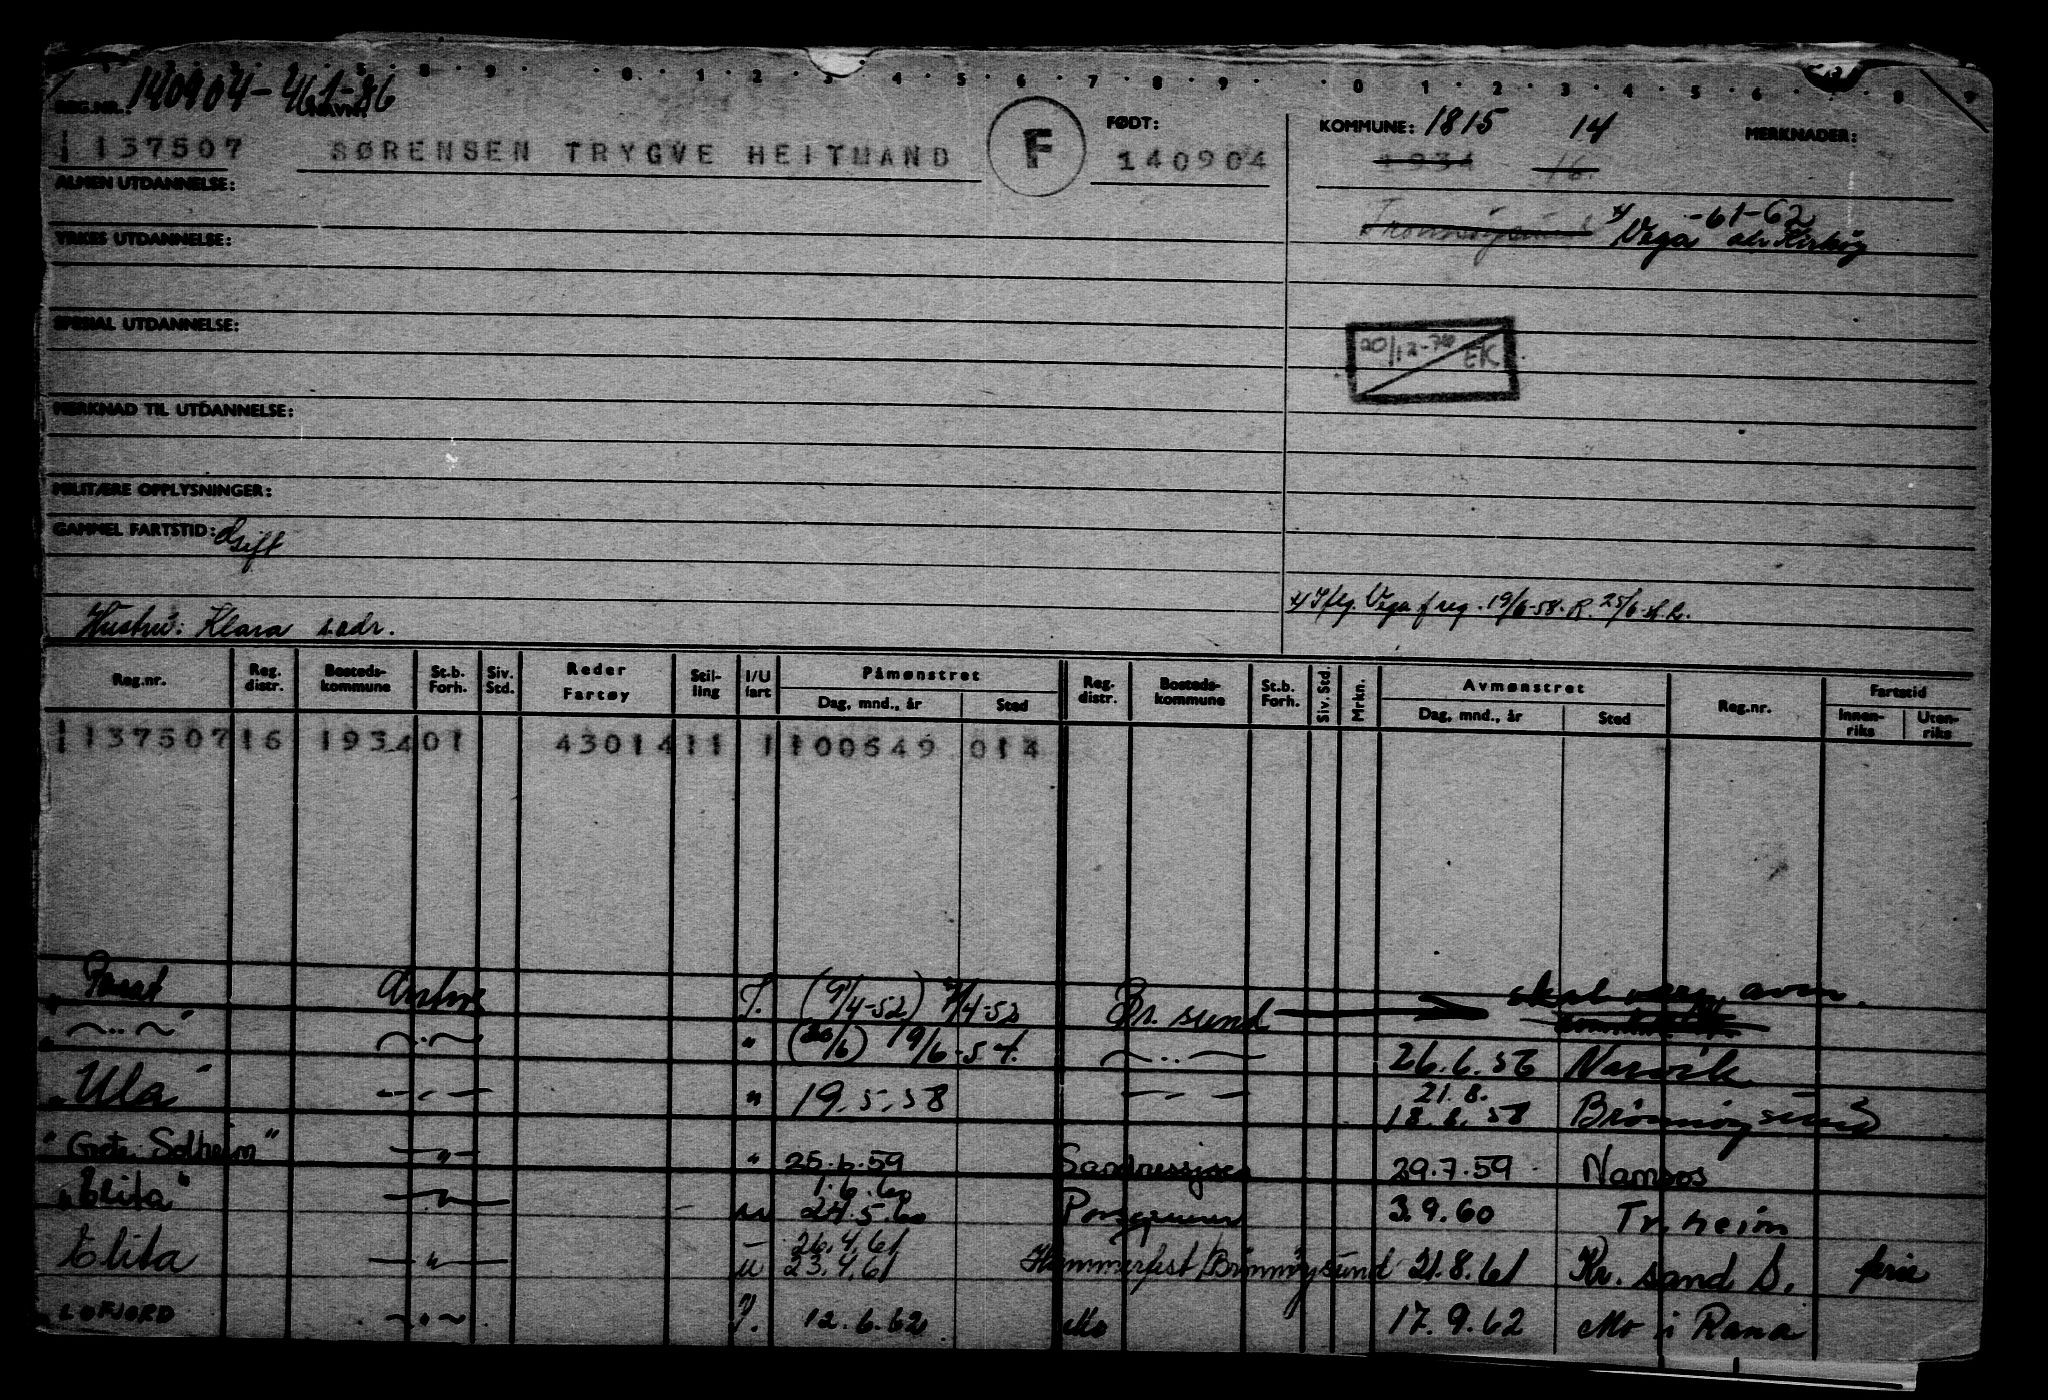 140904-46186
REG.NR.: NAVN: FØDT: KOMMUNE: 1815 14 MERKNADER:
137507 SØRENSEN TRYGVE HEITMAND F 140904 1934 16
ALMEN UTDANNELSE:
-61-62
YRKES UTDANNELSE: Vega
SPESIAL UTDANNELSE:
20/12-70 EK
MERKNAD TIL UTDANNELSE:
MILITÆRE OPPLYSNINGER:
GAMMEL FARTSTID:
x/ Iflg. Vega f reg. 19/6-58. R. 25/6
Hustru: Klara sadr.
Reg.nr. Reg. distr. Bosteds-kommune St.b. Forh. Siv. Std. Reder Fartøy Stil-ling I/U fart Påmønstret Dag, mnd., år Sted Reg. distr. Bosteds-kommune St.b. Forh. Siv. Std. Mrkn. Avmønstret Dag, mnd., år Sted Reg.nr. Fartstid Innen-riks Uten-riks
137507 16 1934 01 43014 11 1 100649 014
I. (9/4-52) 7/4-52 Br. sund avm.
-"- -"- " (20/6) 19/6-54. -"- 26.6.56 Narvik
"Ula" -"- " 19.5.58 -"- 21.8. 18.8.58 Brønnøysund
"Grete Solheim" -"- " 25.6.59 Sandnessjøen 29.7.59 Namsos
"Elita" -"- 1.6.60 24.5.60 Porsgrunn 3.9.60 Tr.heim
Elita -"- 26.4.61 23.4.61 Hammerfest/Brønnøysund 21.8.61 Kr.sand S.
LOFJORD -"- I. 12.6.62 Mo 17.9.62 Mo i Rana